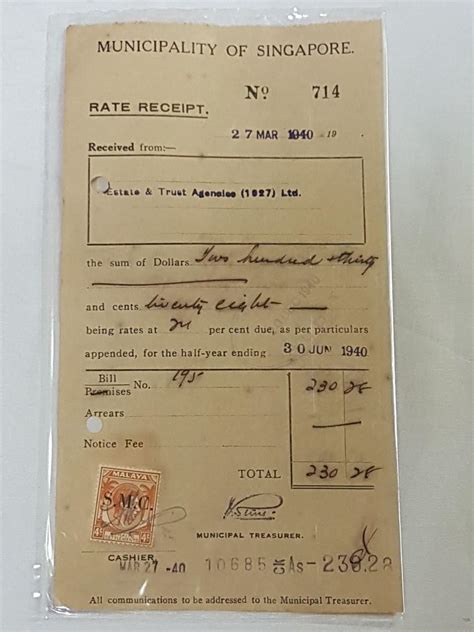 MUNICIPALITY OF SINGAPORE.
Nº 714
RATE RECEIPT.
27 MAR 1940 19
Received from:—
Estate & Trust Agencies (1927) Ltd.
the sum of Dollars Two hundred & thirty
and cents twenty eight
being rates at per cent due, as per particulars
appended, for the half-year ending 30 JUN 1940
Bill
Premises No. 230 28
Arrears
Notice Fee
TOTAL 230 28
MALAYA
S.M.C.
4c 4c
MUNICIPAL TREASURER.
CASHIER
MAR 27 -40 10685 As- 230.28
All communications to be addressed to the Municipal Treasurer.